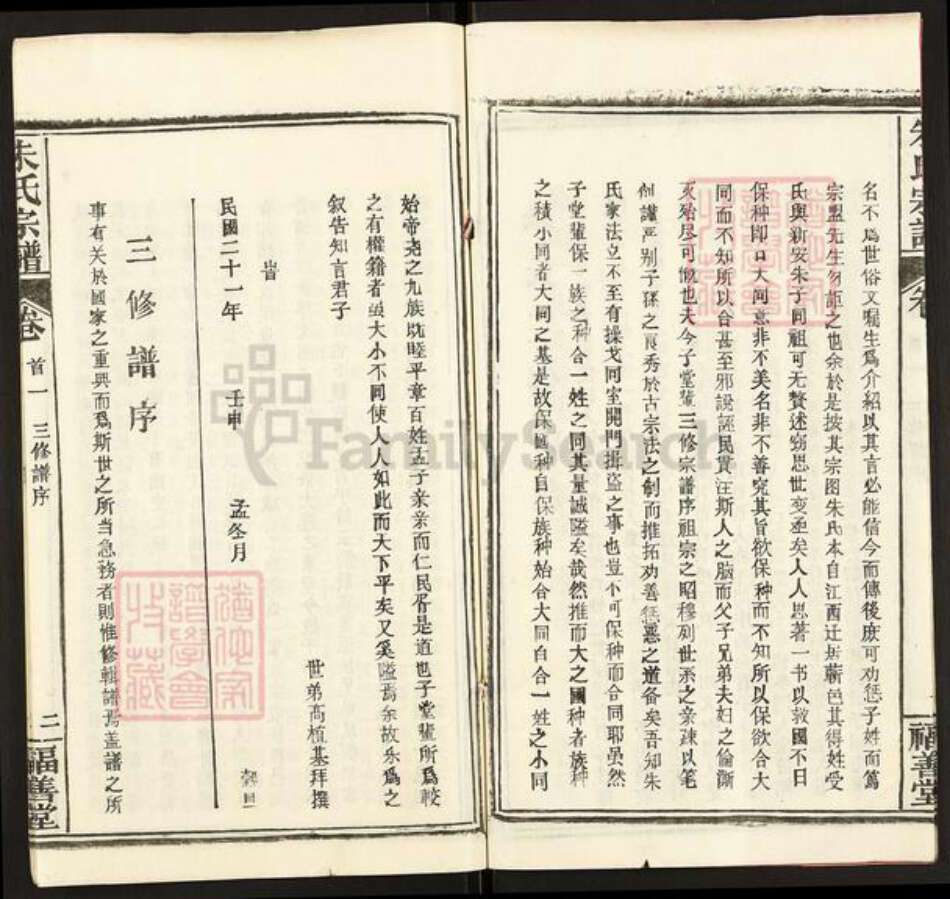 名不爲世俗文嘱生爲介紹以其言必能信今而傳後庶可劝惩子姓而篤
宗盟先生勿詎之也余於是按其宗图朱氏本自江西迁居蘄邑其得姓受
氏與新安朱子同祖可无赘述窃思世变亟矣人人思著一书以救國不日
保种即曰大同意非不美名非不善究其旨欲保种而不知所以保欲合大
同而不知所以合甚至邪說誣民貫注斯人之脑而父子兄弟夫妇之倫澌
灭殆尽可慨也夫今子堂輩三修宗譜序祖宗之昭穆列世系之亲疎以笔
削謹严别子孫之良秀於古宗法之制而推拓劝善惩惡之道备矣吾知朱
氏家法立不至有操戈同室開門揖盗之事也豈不可保种而合同耶虽然
子堂輩保一族之种合一姓之同其量誠隘矣哉然推而大之國种者族种
之積小同者大同之基是故保國种自保族种始合大同自合一姓之小同
始帝尧之九族既睦平章百姓孟子亲亲而仁民胥是道也子堂輩所爲較
之有權籍者虽大小不同使人人如此而大下平矣又奚隘焉余故乐爲之
叙告知言君子
世弟高植基拜撰
皆
民國二十一年 壬申 孟冬月 穀旦
三修譜序
事有关於國家之重興而爲斯世之所当急務者則惟修輯譜焉盖譜之所
朱氏宗譜 卷首一 三修譜序 二 福善堂
朱氏宗譜
福善堂
FamilySearch